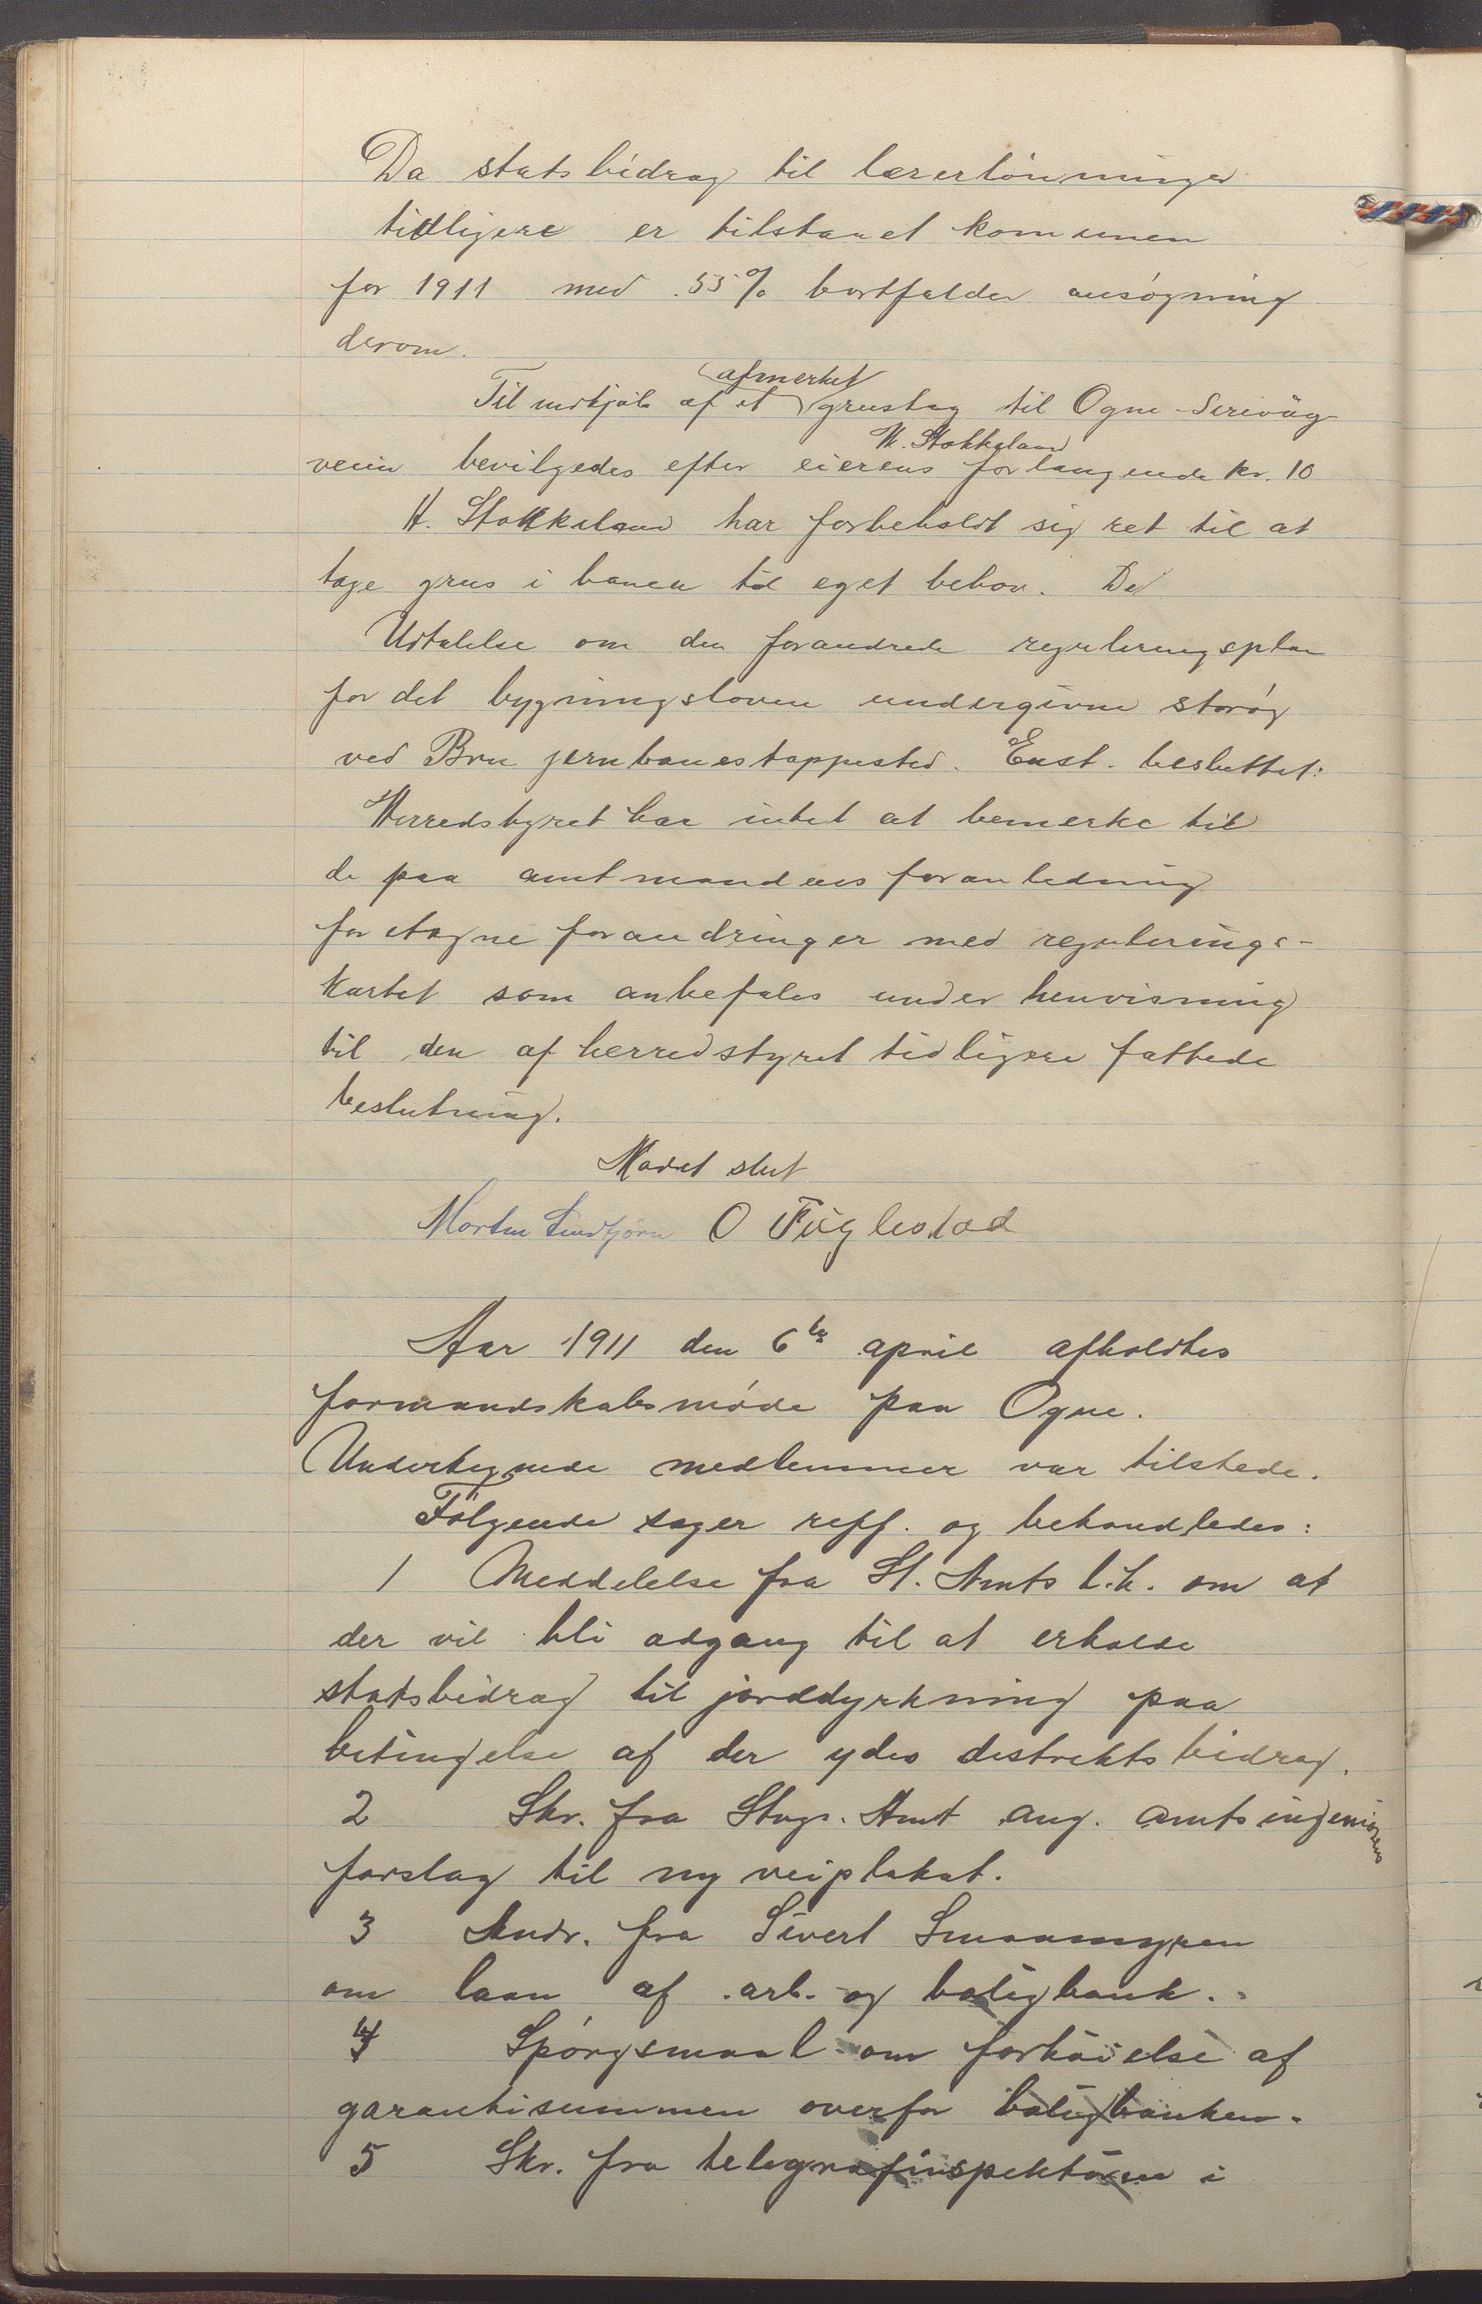 Da statsbidrag til lærerlønninger
tidligere er tilstaaet kommunen
for 1911 med 55% bortfalder ansøgning
derom.
afmerket
Til indkjøb af et grustag til Ogne-Sirevåg
H. Stokkeland
veien bevilgedes efter eierens forlangende kr. 10
H. Stokkeland har forbeholdt sig ret til at
tage grus i banen til eget behov. De
Udtalelse om den forandrede reguleringsplan
for det bygningsloven undergivne strøg
ved Bru jernbanestoppested. Enst. besluttet:
Herredstyret har intet at bemerke til
de paa amtmandens foranledning
foretagne forandringer med regulerings-
kartet som anbefales under henvisning
til den af herredstyret tidligere fattede
beslutning.
Mødet slut
Morten Lindtjørn O Fuglestad
Aar 1911 den 6te april afholdtes
formandskabsmøde paa Ogne.
Undertegnede medlemmer var tilstede.
Følgende sager reff. og behandledes:
1 Meddelelse fra St. Amts l.h. om at
der vil bli adgang til at erholde
statsbidrag til jorddyrkning paa
betingelse af der ydes distriktsbidrag.
2 Skr. fra Stvgr. Amt ang. amtsingeniørens
forslag til ny veiplakat.
3 Andr. fra Sivert Smaamyren
om laan af arb. og boligbank.
4 Spørgsmaal om forhøielse af
garantisummen overfor boligbanken.
5 Skr. fra telegrafinspektøren i